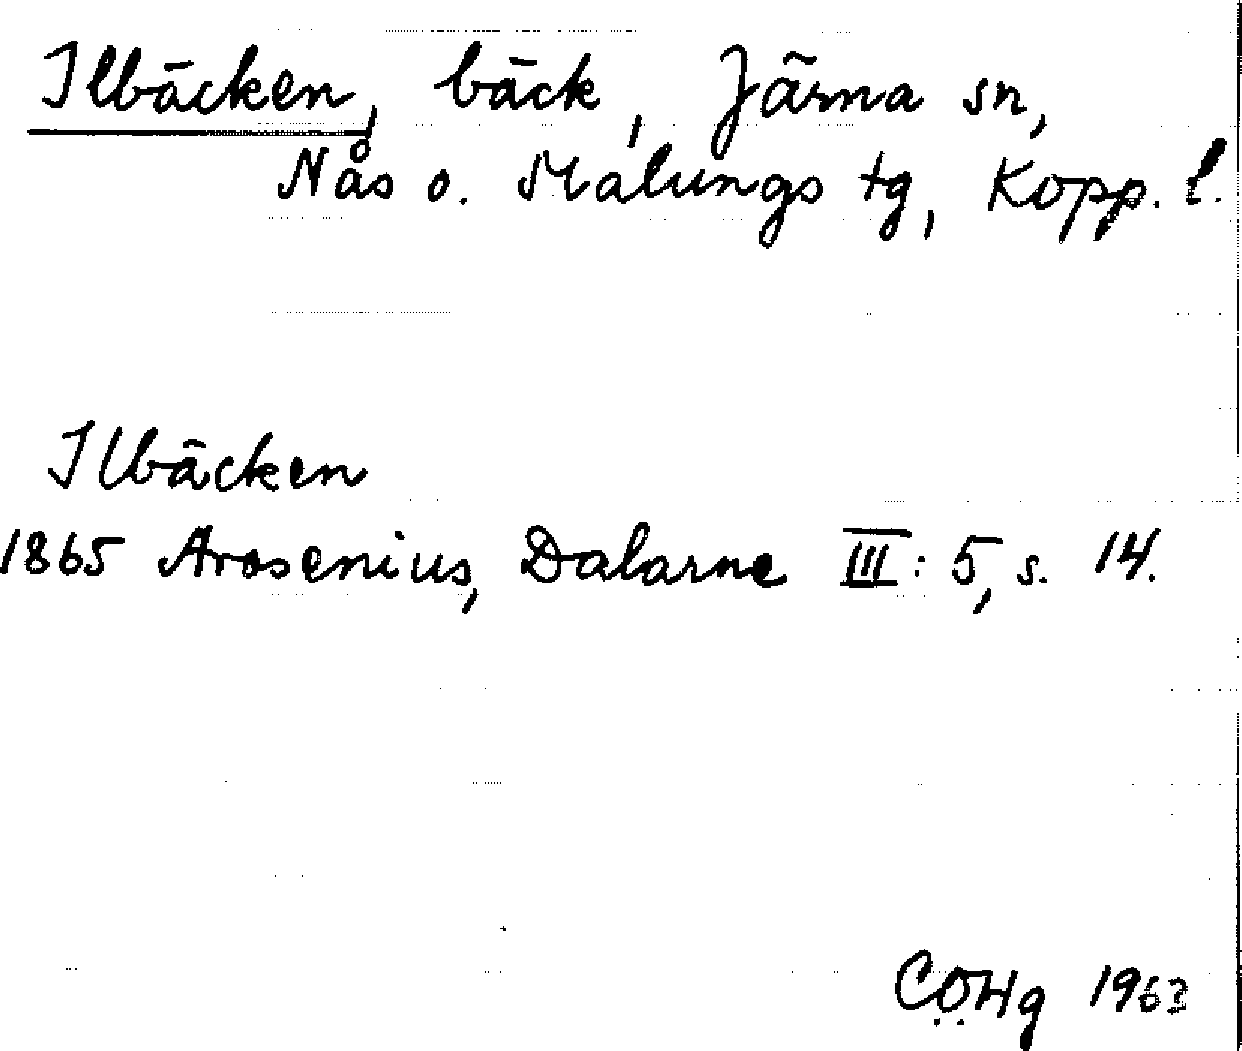 Ilbäcken, bäck, Järna sn,
Nås o. Malungs tg, Kopp. l.
Ilbäcken
1865 Arosenius, Dalarne III: 5, s. 14.
CÖHg 1963